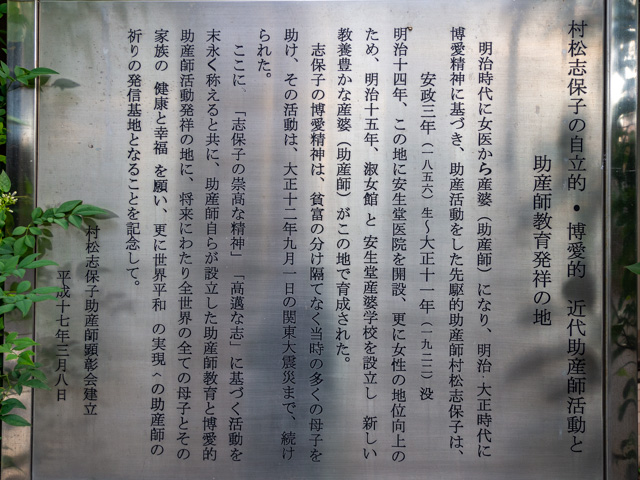 村松志保子の自立的 • 博愛的 近代助産師活動と
助産師教育発祥の地
明治時代に女医から産婆（助産師）になり、明治・大正時代に
博愛精神に基づき、助産活動をした先駆的助産師村松志保子は、
安政三年（一八五六）生〜大正十一年（一九二二）没
明治十四年、この地に安生堂医院を開設、更に女性の地位向上の
ため、明治十五年、淑女館 と 安生堂産婆学校を設立し 新しい
教養豊かな産婆（助産師）がこの地で育成された。
志保子の博愛精神は、貧富の分け隔てなく当時の多くの母子を
助け、その活動は、大正十二年九月一日の関東大震災まで、続け
られた。
ここに 「志保子の崇高な精神」 「高邁な志」に基づく活動を
末永く称えると共に、助産師自らが設立した助産師教育と博愛的
助産師活動発祥の地に、将来にわたり全世界の全ての母子とその
家族の 健康と幸福 を願い、更に世界平和 の実現 への助産師の
祈りの発信基地となることを記念して。
村松志保子助産師顕彰会建立
平成十七年三月八日